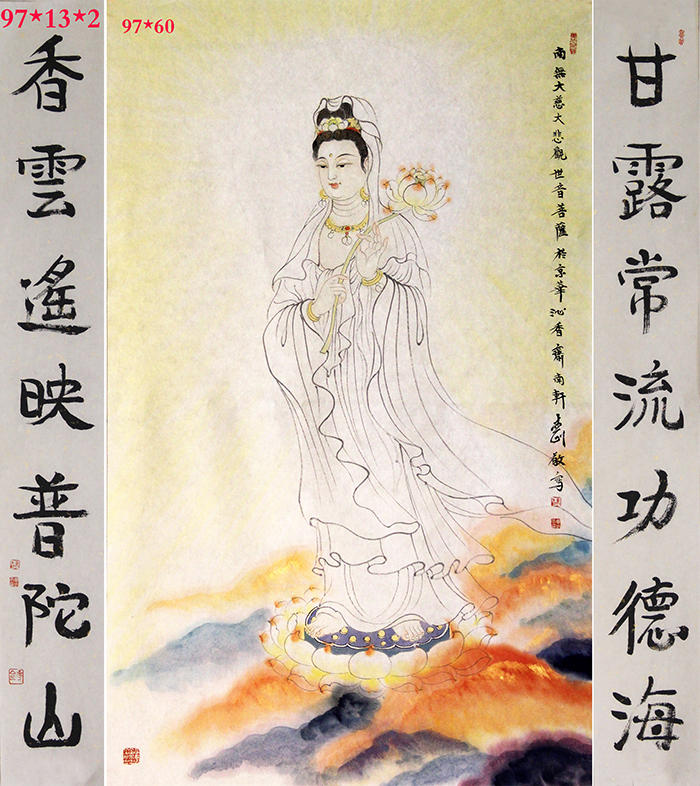 97*13*2
97*60
甘露常流功德海
南無大慈大悲觀世音菩薩於京華沁香齋南軒 敬寫
香雲遙映普陀山